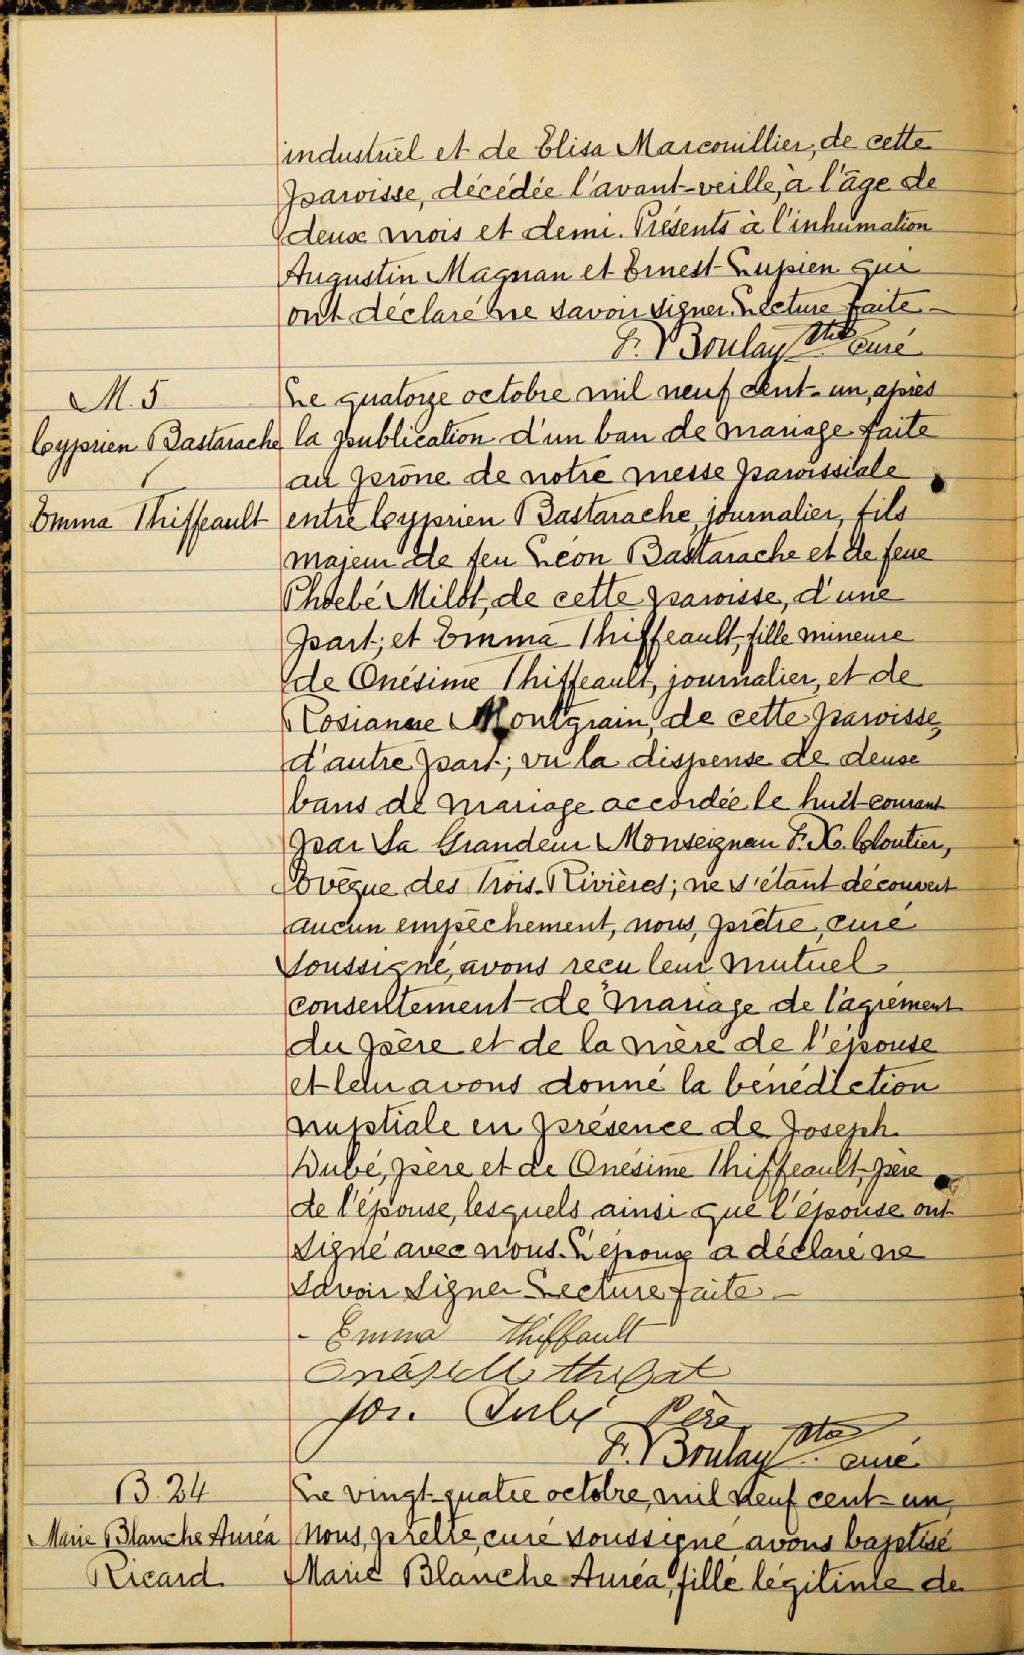 industriel et de Elisa Marcouillier, de cette
paroisse, décédée l'avant-veille, à l'âge de
deux mois et demi. Présents à l'inhumation
Augustin Magnan et Ernest Lupien qui
ont déclaré ne savoir signer. Lecture faite –
F. Boulay Ptre curé
M. 5
Le quatorze octobre mil neuf cent-un, après
Cyprien Bastarache
la publication d'un ban de mariage faite
au prône de notre messe paroissiale
Emma Thiffeault
entre Cyprien Bastarache, journalier, fils
majeur de feu Léon Bastarache et de feue
Phoebé Milot, de cette paroisse, d'une
part; et Emma Thiffeault, fille mineure
de Onésime Thiffeault, journalier, et de
Rosianne Montgrain, de cette paroisse,
d'autre part; vu la dispense de deux
bans de mariage accordée le huit courant
par Sa Grandeur Monseigneur F. X. Cloutier,
Evêque des Trois-Rivières; ne s'étant découvert
aucun empêchement, nous, prêtre, curé
soussigné, avons reçu leur mutuel
consentement de mariage de l'agrément
du père et de la mère de l'épouse
et leur avons donné la bénédiction
nuptiale en présence de Joseph
Dubé, père et de Onésime Thiffeault, père
de l'épouse, lesquels ainsi que l'épouse ont
signé avec nous. L'époux a déclaré ne
savoir signer Lecture faite –
- Emma Thiffault
Jos. Père
F. Boulay Ptre curé
B. 24
Le vingt-quatre octobre, mil neuf cent-un,
Marie Blanche Auréa
nous, prêtre, curé soussigné avons baptisé
Ricard
Marie Blanche Auréa, fille légitime de